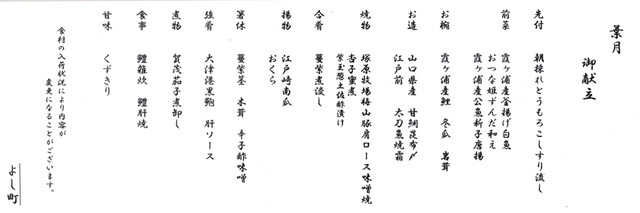 葉月
御献立
先付 朝採れとうもろこしすり流し
前菜 霞ヶ浦産釜揚げ白魚
おつな姫ずんだ和え
霞ヶ浦産公魚新子唐揚
お椀 霞ヶ浦産鯉 冬瓜 岩茸
お造 山口県産 甘鯛昆布〆
江戸前 太刀魚焼霜
焼物 塚原牧場梅山豚肩ロース味噌焼
杏子蜜煮
紫玉葱土佐酢漬け
合肴 蔓紫浸し
揚物 江戸崎南瓜
おくら
箸休 蔓紫茎 木茸 辛子酢味噌
強肴 大津港黒鮑 肝ソース
煮物 賀茂茄子煮卸し
食事 鱧雑炊 鱧肝焼
甘味 くずきり
食材の入荷状況により内容が
変更になることがございます。
よし町